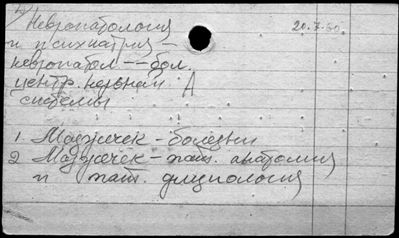 Невропатология 20.3.50.
и психиатрия –
невропатол – – бол.
центр. нервной А
системы
1. Мозжечек – болезни
2 Мозжечек – пат. анатомия
и пат. физиология